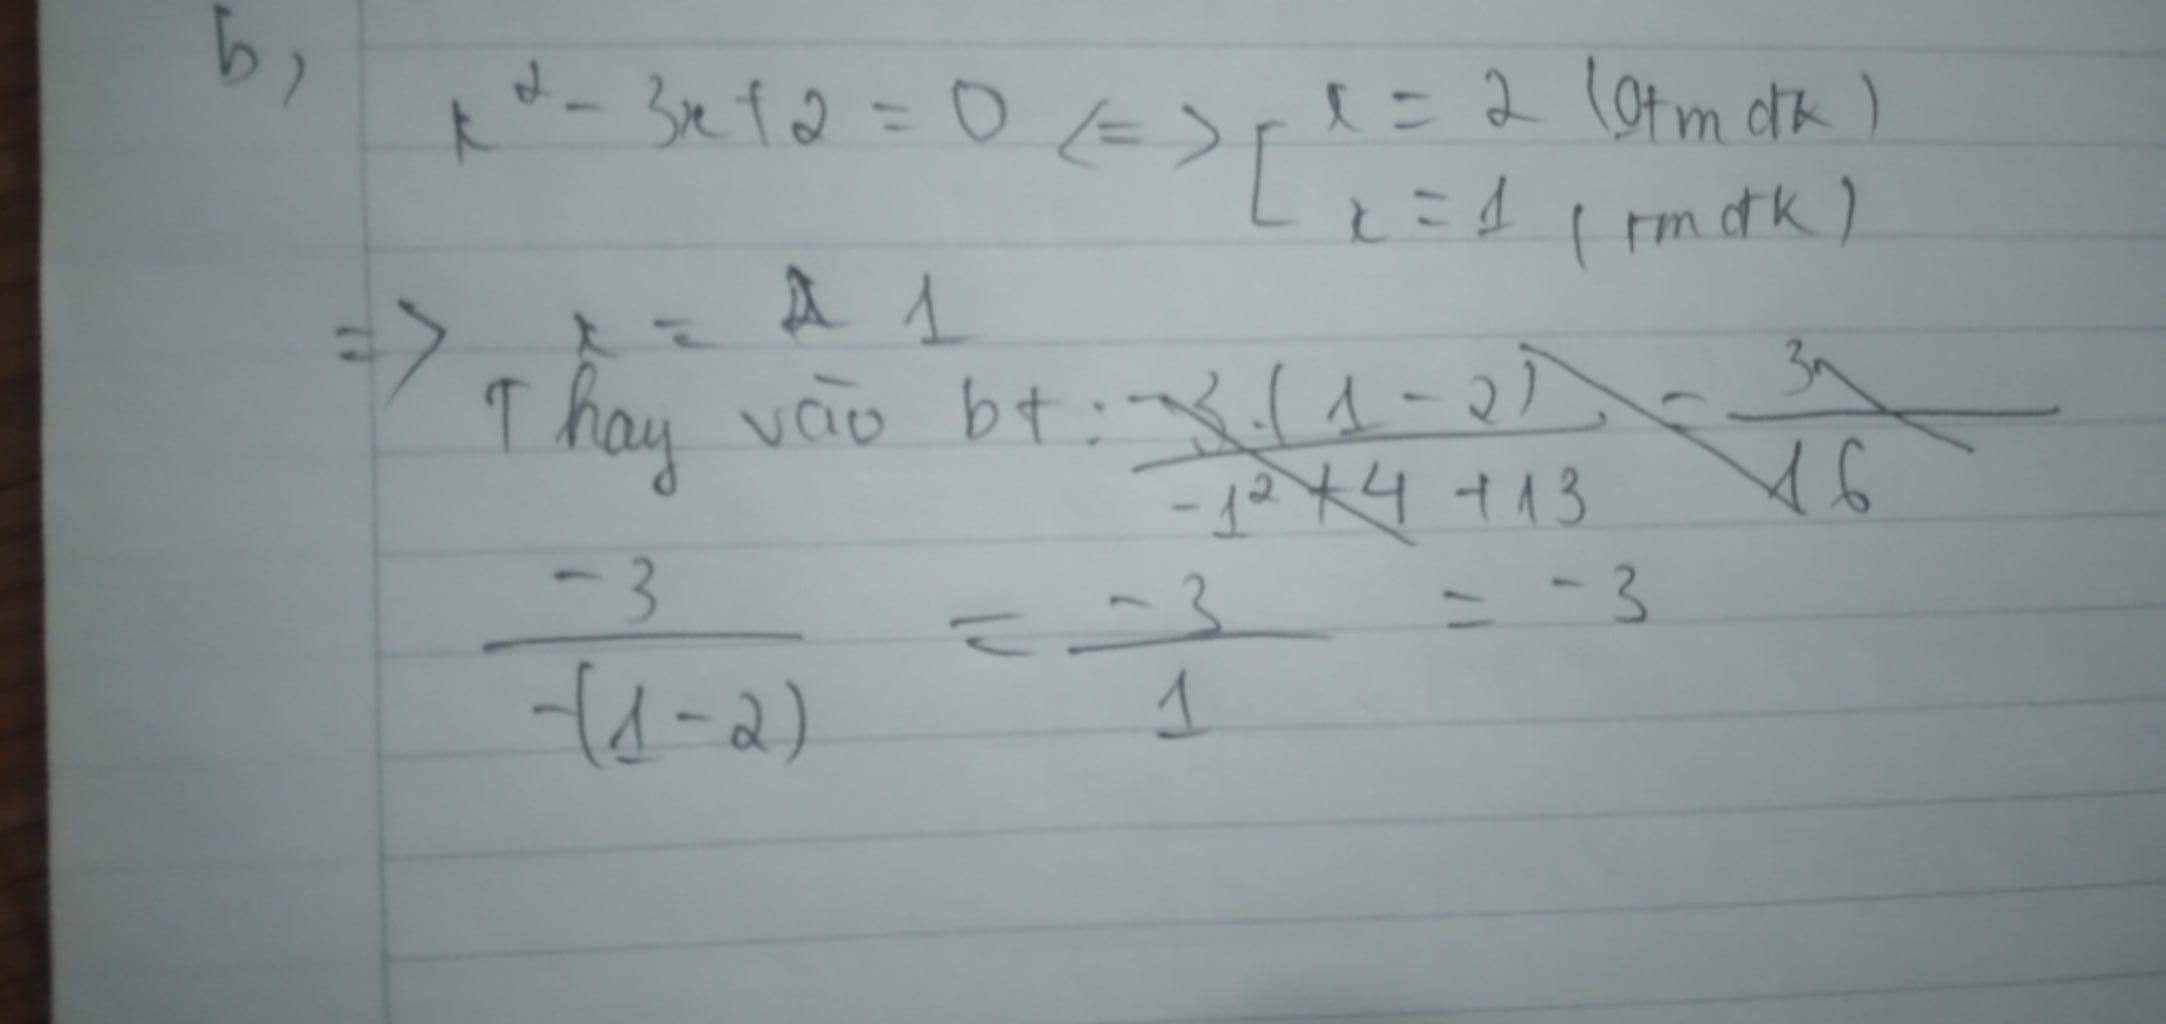 b,
x² - 3x + 2 = 0 <=> [ x = 2 (0tm đk)
x = 1 (tm đk)
=> x = 1
Thay vào bt: -3.(1-2) / -1² + 4 + 13 = 3 / 16
-3 / -(1-2) = -3 / 1 = -3